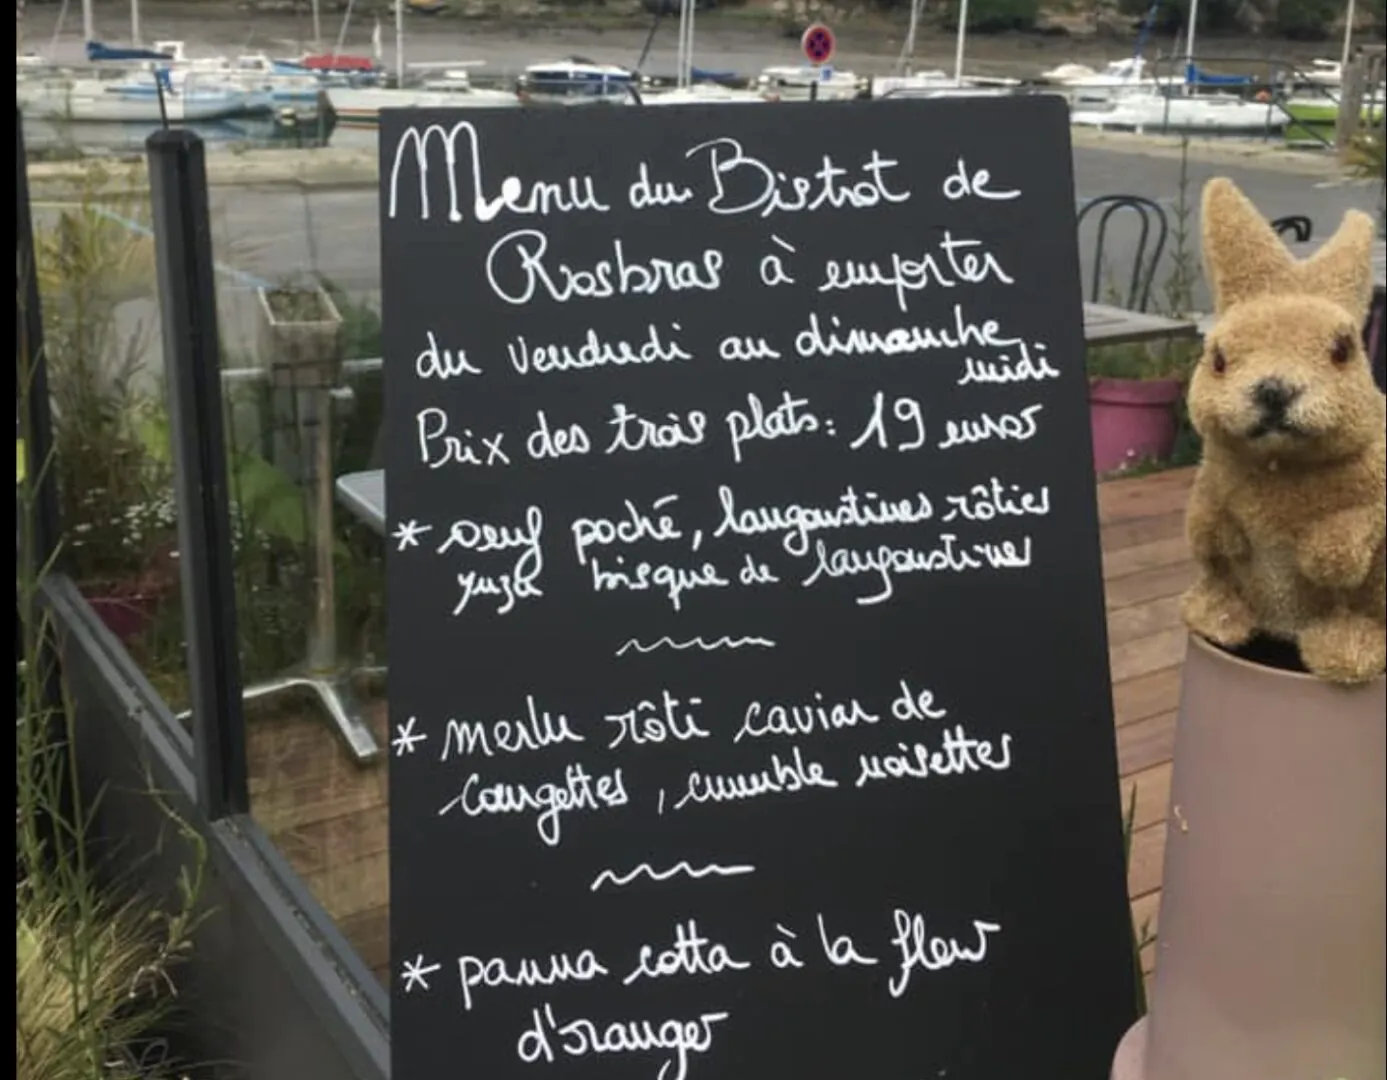 Menu du Bistrot de
Rosbras à emporter
du vendredi au dimanche
midi
Prix des trois plats: 19 euros
* oeuf poché, langoustines rôties
yuzu bisque de langoustines
* merlu rôti caviar de
courgettes, crumble noisettes
* panna cotta à la fleur
d'oranger